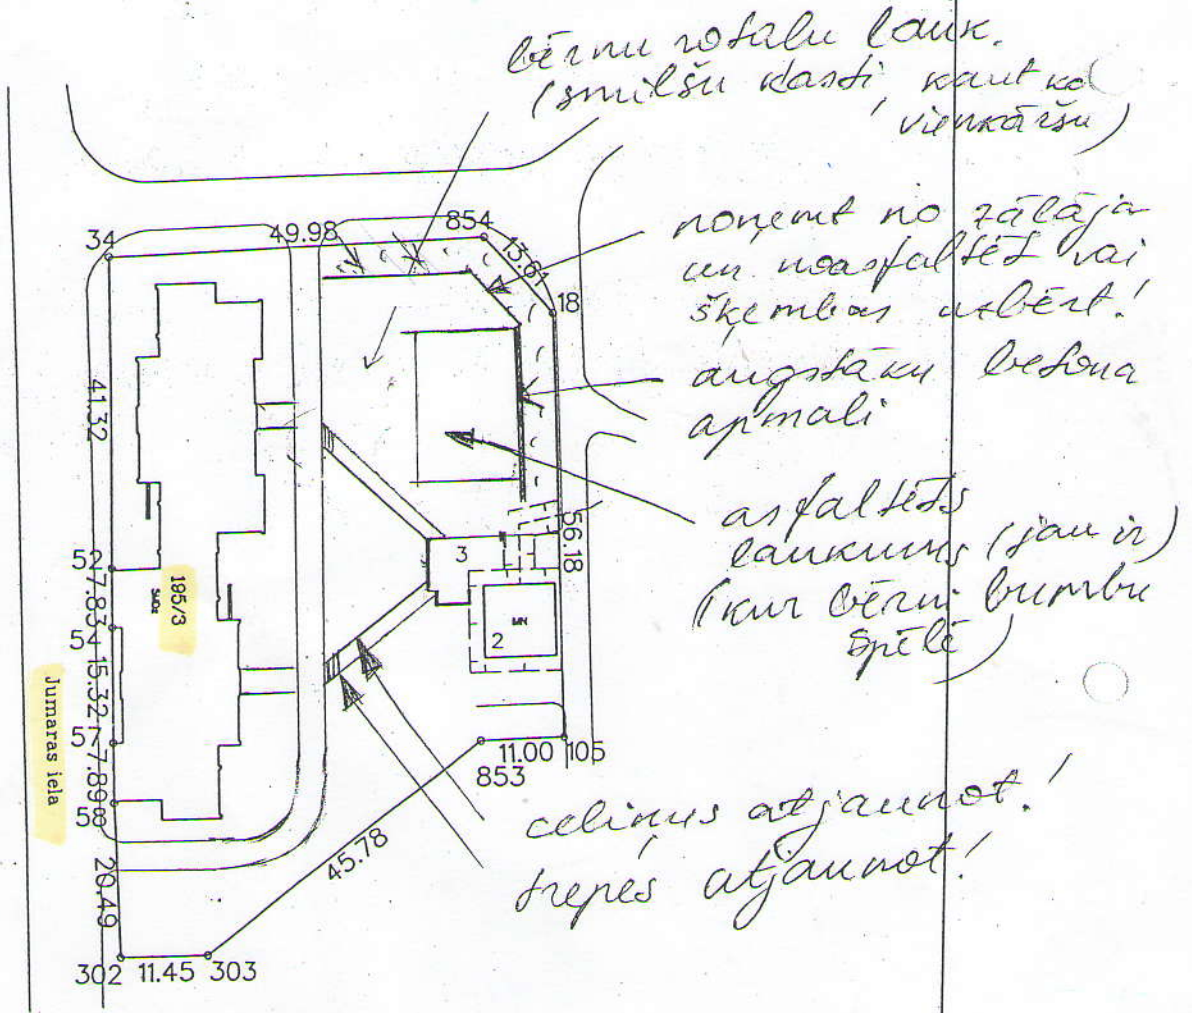 bērnu rotaļu lauk.
(smilšu kasti, kaut ko
vienkāršu)
noņemt no zālāja
un noasfaltēt vai
šķembas uzbērt!
augstāku betona
apmali
asfaltēts
laukums (jau ir)
(kur bērni bumbu
spēlē)
celiņus atjaunot!
trepes atjaunot!
34
49.98
854
13.61
18
41.32
56.18
3
52
7.83
54
195/3
2
MN
15.32
57
7.89
58
Jumaras iela
11.00
105
853
45.78
20.49
302
11.45
303